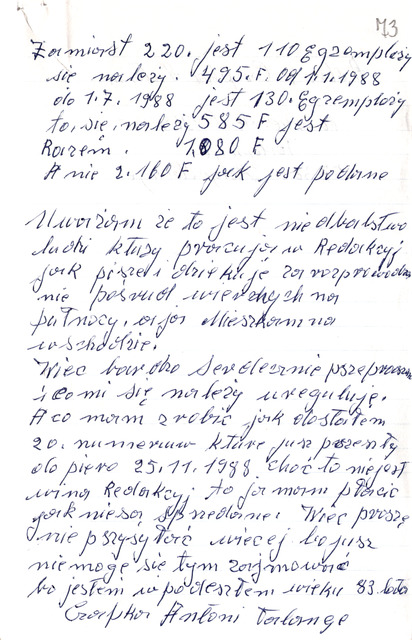 73
Zamiast 220. jest 110 Egzemplaży
się należy. 495.F. od 1.1.1988
do 1.7.1988 jest 130. Egzemplaży
to, się, należy 585 F jest
Razem. 1080 F
A nie 2.160 F jak jest podane
Uważam że to jest niedbalstwo
ludzi ktuży pracują w Redakcyj
jak pisze i dziękuje za rozprowadzenie
pośrud wiernych na
pułnocy, a ja Mieszkam na
wschodzie.
Więc bardzo Serdecznie pszepraszam
i co mi się należy ureguluję.
A co mam zrobić jak dostałem
20. numeruw które już przeszły
do piero 25.11.1988 choć to nie jest
wina Redakcyj to ja mam płacić
jak nie są spżedane. Więc proszę
nie pszysyłać więcej bo już
nie mogę się tym zajmować
bo jestem w podeszłem wieku 83. lata
Czapka Antoni